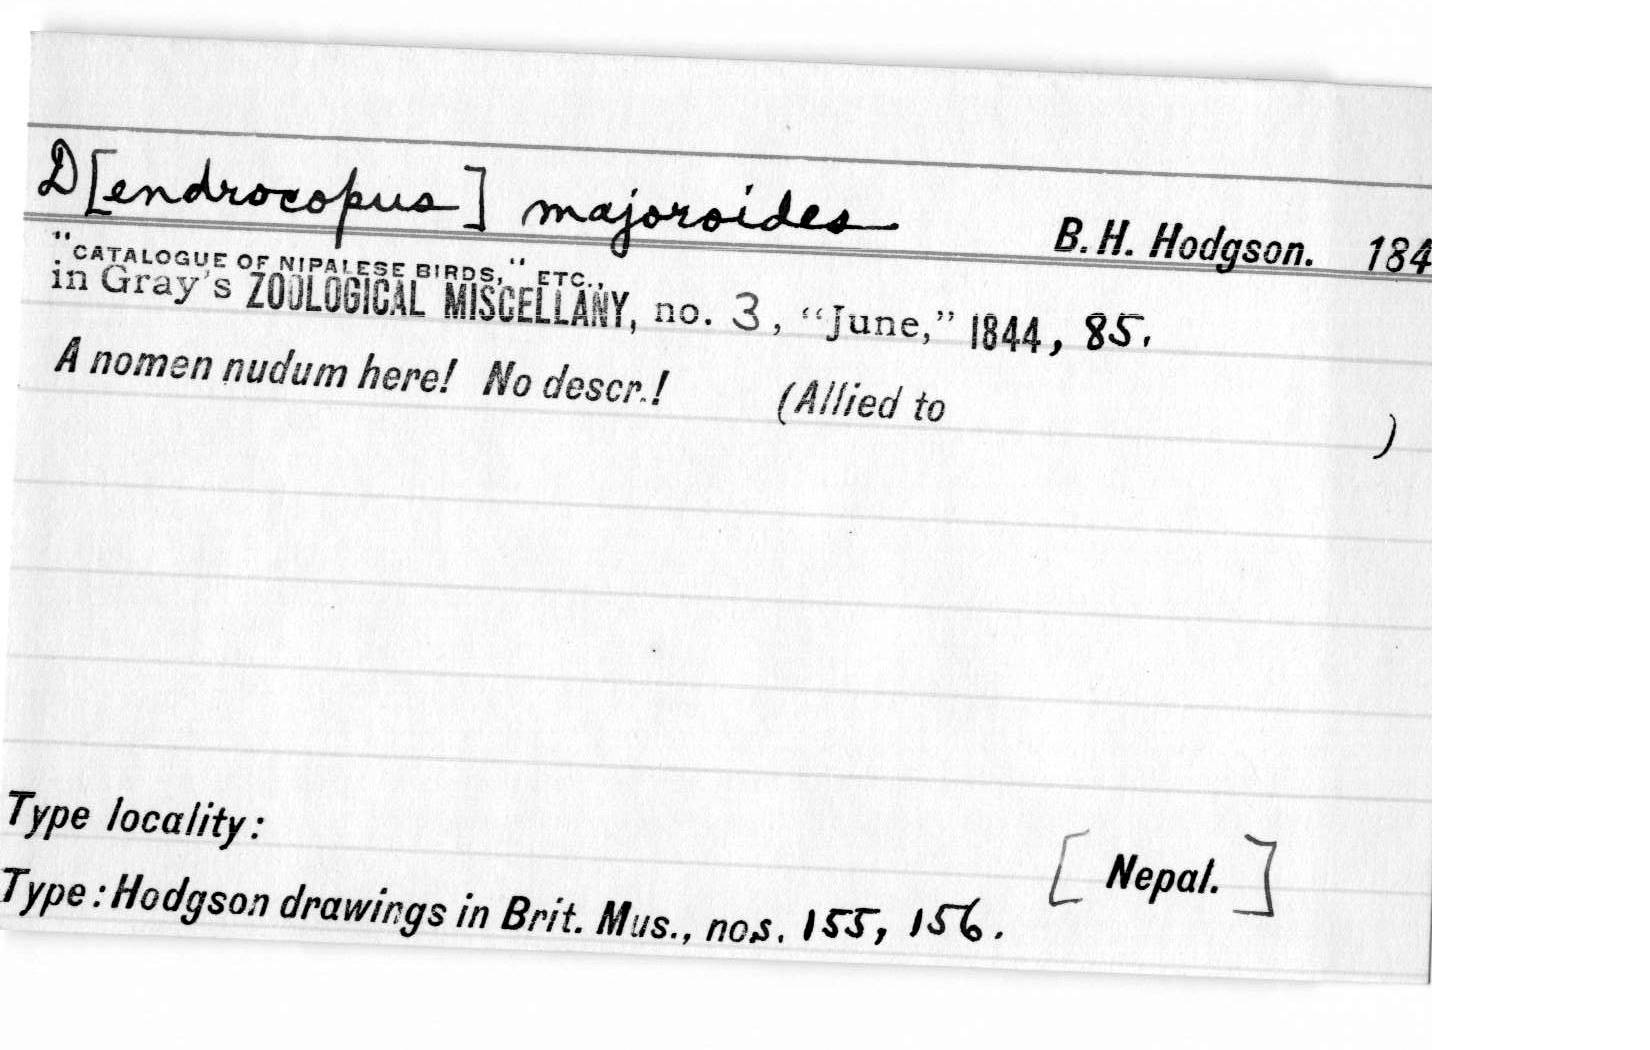 D[endrocopus] majoroides B. H. Hodgson. 184
"CATALOGUE OF NIPALESE BIRDS," ETC.,
in Gray's ZOOLOGICAL MISCELLANY, no. 3, "June," 1844, 85.
A nomen nudum here! No descr.! (Allied to )
Type locality: [Nepal.]
Type: Hodgson drawings in Brit. Mus., nos. 155, 156.